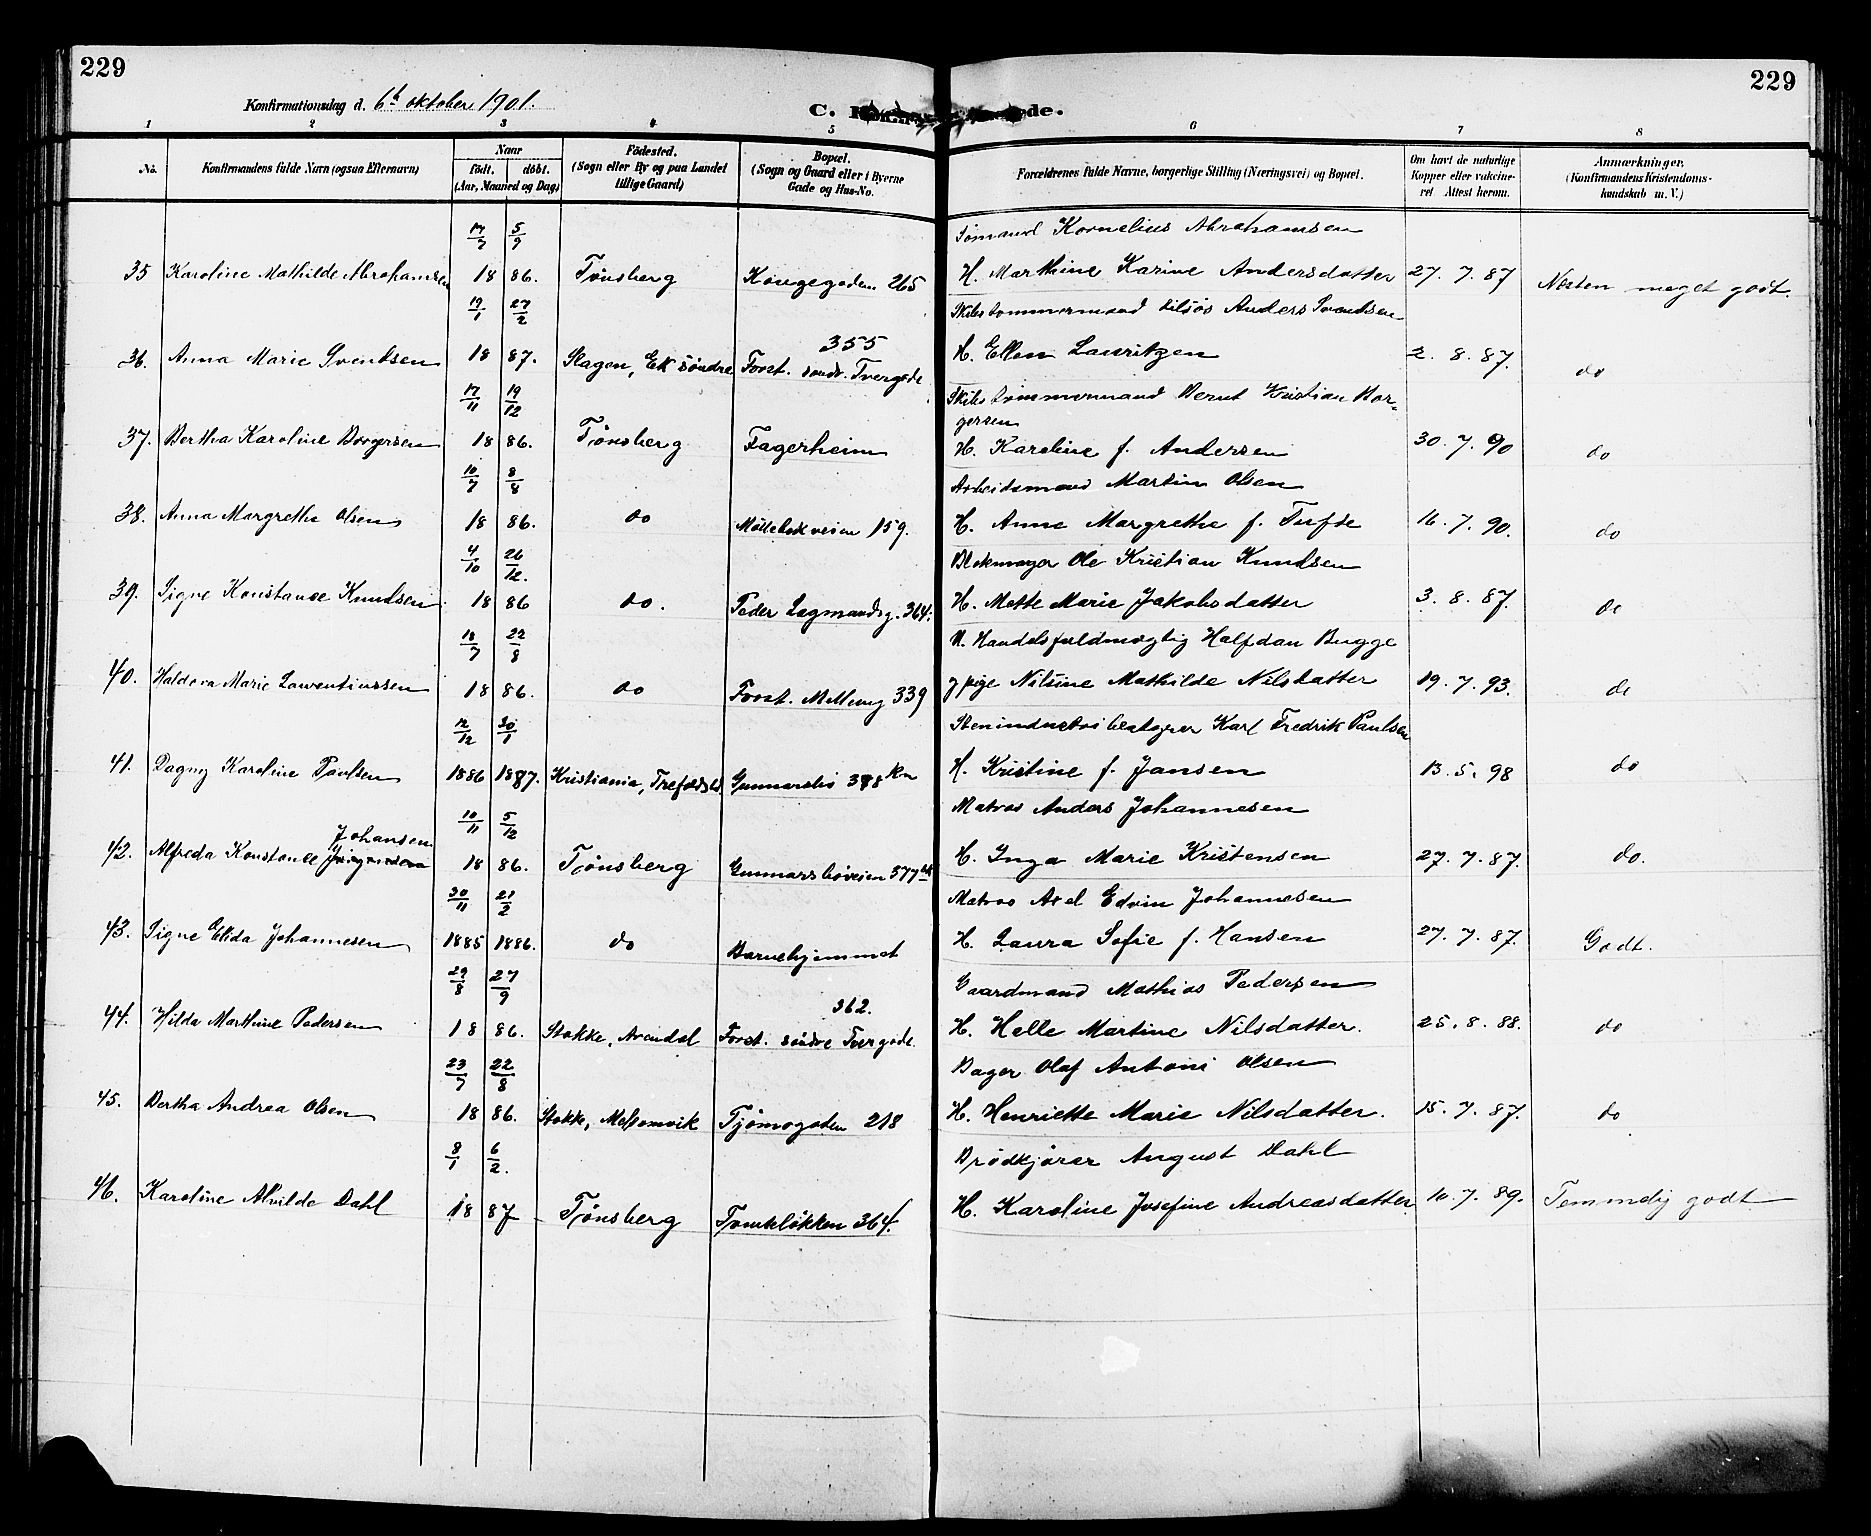 229
229
Konfirmationsdag d. 6h oktober 1901.
C. de.
1 2 3 4 5 6 7 8
No.
Konfirmandens fulde Navn (ogsaa Efternavn)
Naar
födt. döbt.
(Aar, Maaned og Dag)
Födested.
(Sogn eller By og paa Landet
tillige Gaard)
Bopæl.
(Sogn og Gaard eller i Byerne
Gade og Hus-No.
Forældrenes fulde Navne, borgerlige Stilling (Næringsvei) og Bopæl.
Om havt de naturlige
Kopper eller vakcine-
ret Attest herom.
Anmærkninger.
(Konfirmandens Kristendoms-
kundskab m. V.)
17/7 5/9 Sømand Kornelius Abrahamsen
35 Karoline Mathilde Abrahamsen 18 86. Tönsberg Kongegaden 265 H. Marthine Karine Andersdatter 27. 7. 87 Nesten meget godt.
19/1 27/2 Skibstømmermand tilsjös Anders Svendsen
355
36. Anna Marie Svendsen 18 87. Slagen, Ek söndre Forst. söndr. Tvergade H. Ellen Lauritzen 2. 8. 87. do
17/11 19/12 Skibstømmermand Bernt Kristian Bor-
gersen
37. Bertha Karoline Borgersen 18 86. Tönsberg Fagerheim H. Karoline f. Andersen 30. 7. 90 do
10/7 8/8 Arbeidsmand Martin Olsen
38. Anna Margrethe Olsen 18 86. do Möllebakveien 159. H. Anne Margrethe f. Tufte 16. 7. 90. do
4/10 26/12. Blokmager Ole Kristian Knudsen
39. Signe Konstanse Knudsen 18 86 do. Peder Lagmandsg. 364. H. Mette Marie Jakobsdatter 3. 8. 87. do
18/7 22/8 U. Handelsfuldmægtig Halfdan Bugge
40. Marie Laurentiussen 18 86. do Forst. 339 g pige Nilsine Mathilde Nilsdatter 19. 7. 93. do
12/12 30/1 Stenindustribestyrer Karl Fredrik Paulsen
41. Dagny Karoline Paulsen 1886 1887. Kristiania, Gunnarsbö 378 H. Kristine f. Jansen 13. 5. 98 do
10/11 5/12 Matros Anders Johannesen
Johansen
42. Alfreda Konstanse 18 86. Tönsberg Gunnarsböveien 377 H. Inga Marie Kristensen 27. 7. 87. do.
30/11 21/2 Matros Axel Edvin Johannesen
43. Signe Elida Johannesen 1885 1886. do Barnehjemmet H. Laura Sofie f. Hansen 27. 7. 87. Godt.
29/8 27/9 Gaardmand Mathias Pedersen
362.
44. Hilda Marthine Pedersen 18 86. Stokke, Arendal Forst. söndre Tvergade. H. Helle Martine Nilsdatter. 25. 8. 88. do
23/7 22/8 Bager Olaf Antoni Olsen
45. Bertha Andrea Olsen 18 86. Stokke, Melsomvik Tjömegaden 218 H. Henriette Marie Nilsdatter. 15. 7. 87. do
8/1 6/2. Brödkjörer August Dahl
46. Karoline Alvilde Dahl 18 87 Tönsberg Tomtelökken 364. H. Karoline Josefine Andreasdatter 10. 7. 89. Temmelig godt